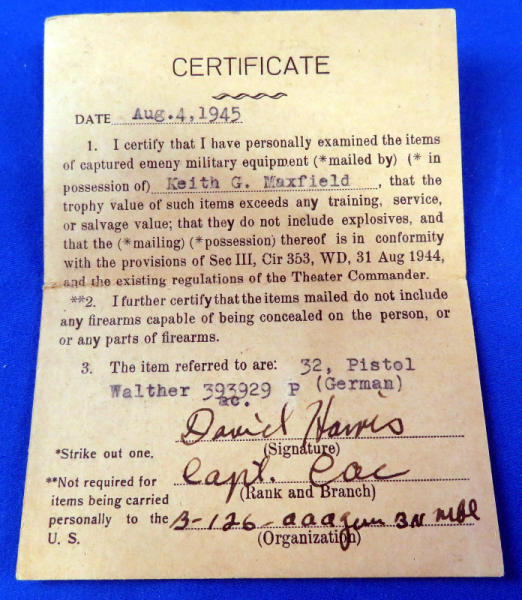 CERTIFICATE
DATE Aug.4,1945
1. I certify that I have personally examined the items
of captured emeny military equipment (*mailed by) (* in
possession of) Keith G. Maxfield, that the
trophy value of such items exceeds any training, service,
or salvage value; that they do not include explosives, and
that the (*mailing) (*possession) thereof is in conformity
with the provisions of Sec III, Cir 353, WD, 31 Aug 1944,
and the existing regulations of the Theater Commander.
**2. I further certify that the items mailed do not include
any firearms capable of being concealed on the person, or
or any parts of firearms.
3. The item referred to are: 32, Pistol
Walther 393929 P (German)
ac.
David Harris
*Strike out one. (Signature)
Capt. Cac
**Not required for (Rank and Branch)
items being carried
personally to the B-126-aaagun BN Mbl
U. S. (Organization)